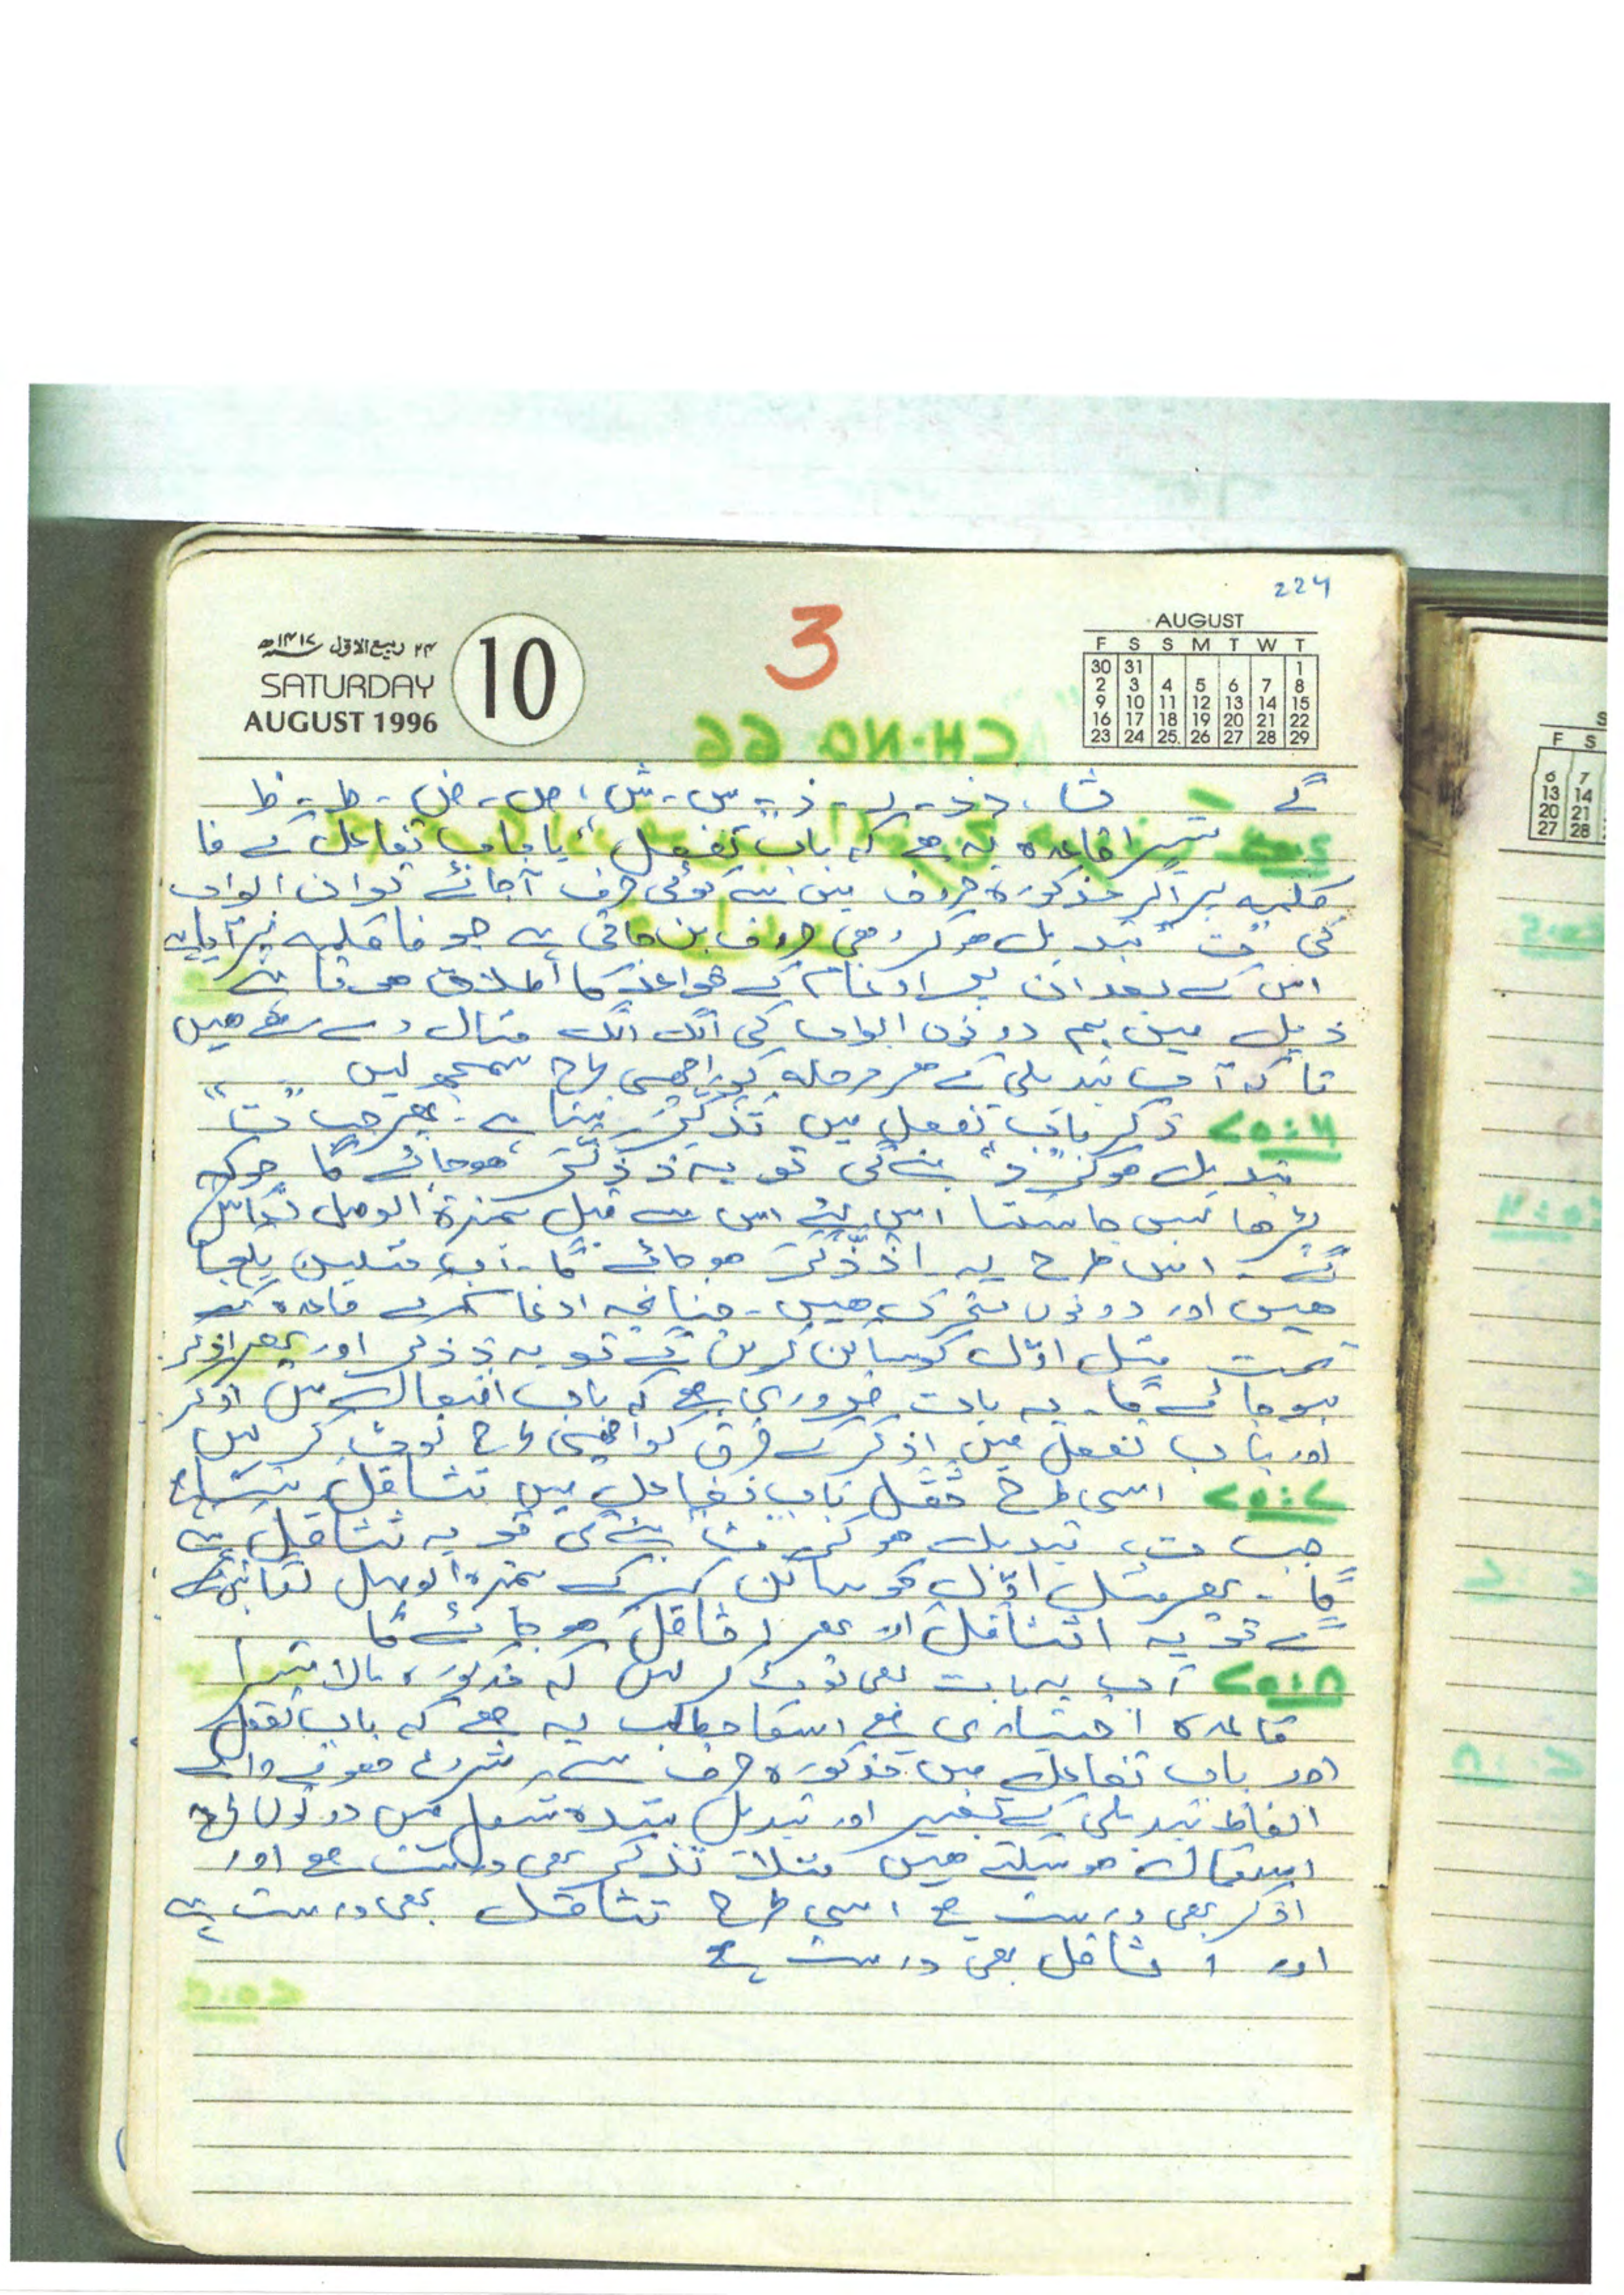 224
۲۴ ربیع الاول ۱۴۱۷ھ
SATURDAY
AUGUST 1996
10
3
AUGUST
F S S M T W T
30 31 1
2 3 4 5 6 7 8
9 10 11 12 13 14 15
16 17 18 19 20 21 22
23 24 25 26 27 28 29
CH.NO 66
گے ث ، د ، ذ ، ز ، س ، ش ، ص ، ض ، ط ، ظ
تیسرا قاعدہ یہ ہے کہ باب تفعل یا باب تفاعل کے فا
کلمہ پر اگر مذکورہ حروف میں سے کوئی حرف آجائے تو ان ابواب
کی "ت" تبدیل ہوکر وہی حروف بن جاتی ہے جو فا کلمہ پر آیا ہے
اس کے بعد ان پر ادغام کے قواعد کا اطلاق ہوتا ہے
ذیل میں ہم دونوں ابواب کی الگ الگ مثال دے رہے ہیں
تا کہ آپ تبدیلی کے ہر مرحلہ کو اچھی طرح سمجھ لیں
۶۵:۶ ذکر باب تفعل میں تذکر بنتا ہے۔ پھر جب "ت"
تبدیل ہوکر "ذ" بنے گی تو یہ ذذکر ہوجائے گا جوکہ
پڑھا نہیں جاسکتا اس لیے اس سے قبل ہمزۃ الوصل لگائیں
گے۔ اس طرح یہ اذذکر ہو جائے گا۔ اب مثلین یکجا
ہیں اور دونوں متحرک ہیں۔ چنانچہ ادغام کے قاعدہ کے
تحت مثل اوّل کو ساکن کریں گے تو یہ ذذکر اور پھر اذکر
ہو جائے گا۔ یہ بات ضروری ہے کہ باب افتعال میں اذکر
اور باب تفعل میں اذکر کے فرق کو اچھی طرح نوٹ کر لیں
۶۵:۷ اسی طرح ثقل باب تفاعل میں تثاقل بنتا ہے
جب ت تبدیل ہو کر ث بنے گی تو یہ ثثاقل بنے
گا۔ پھر مثل اوّل کو ساکن کرکے ہمزہ الوصل لگائیں گے
تو یہ اثثاقل اور پھر اثاقل ہو جائے گا
۶۵:۸ آپ یہ بات بھی نوٹ کر لیں کہ مذکورہ بالا تیسرا
قاعدہ اختیاری ہے اسکا مطلب یہ ہے کہ باب تفعل
اور باب تفاعل میں مذکورہ حرف سے شروع ہونے والے
الفاظ تبدیلی کے بغیر اور تبدیل شدہ شکل میں دونوں طرح
استعمال ہوسکتے ہیں مثلاً تذکر بھی درست ہے اور
اذکر بھی درست ہے اسی طرح تثاقل بھی درست ہے
اور اثاقل بھی درست ہے